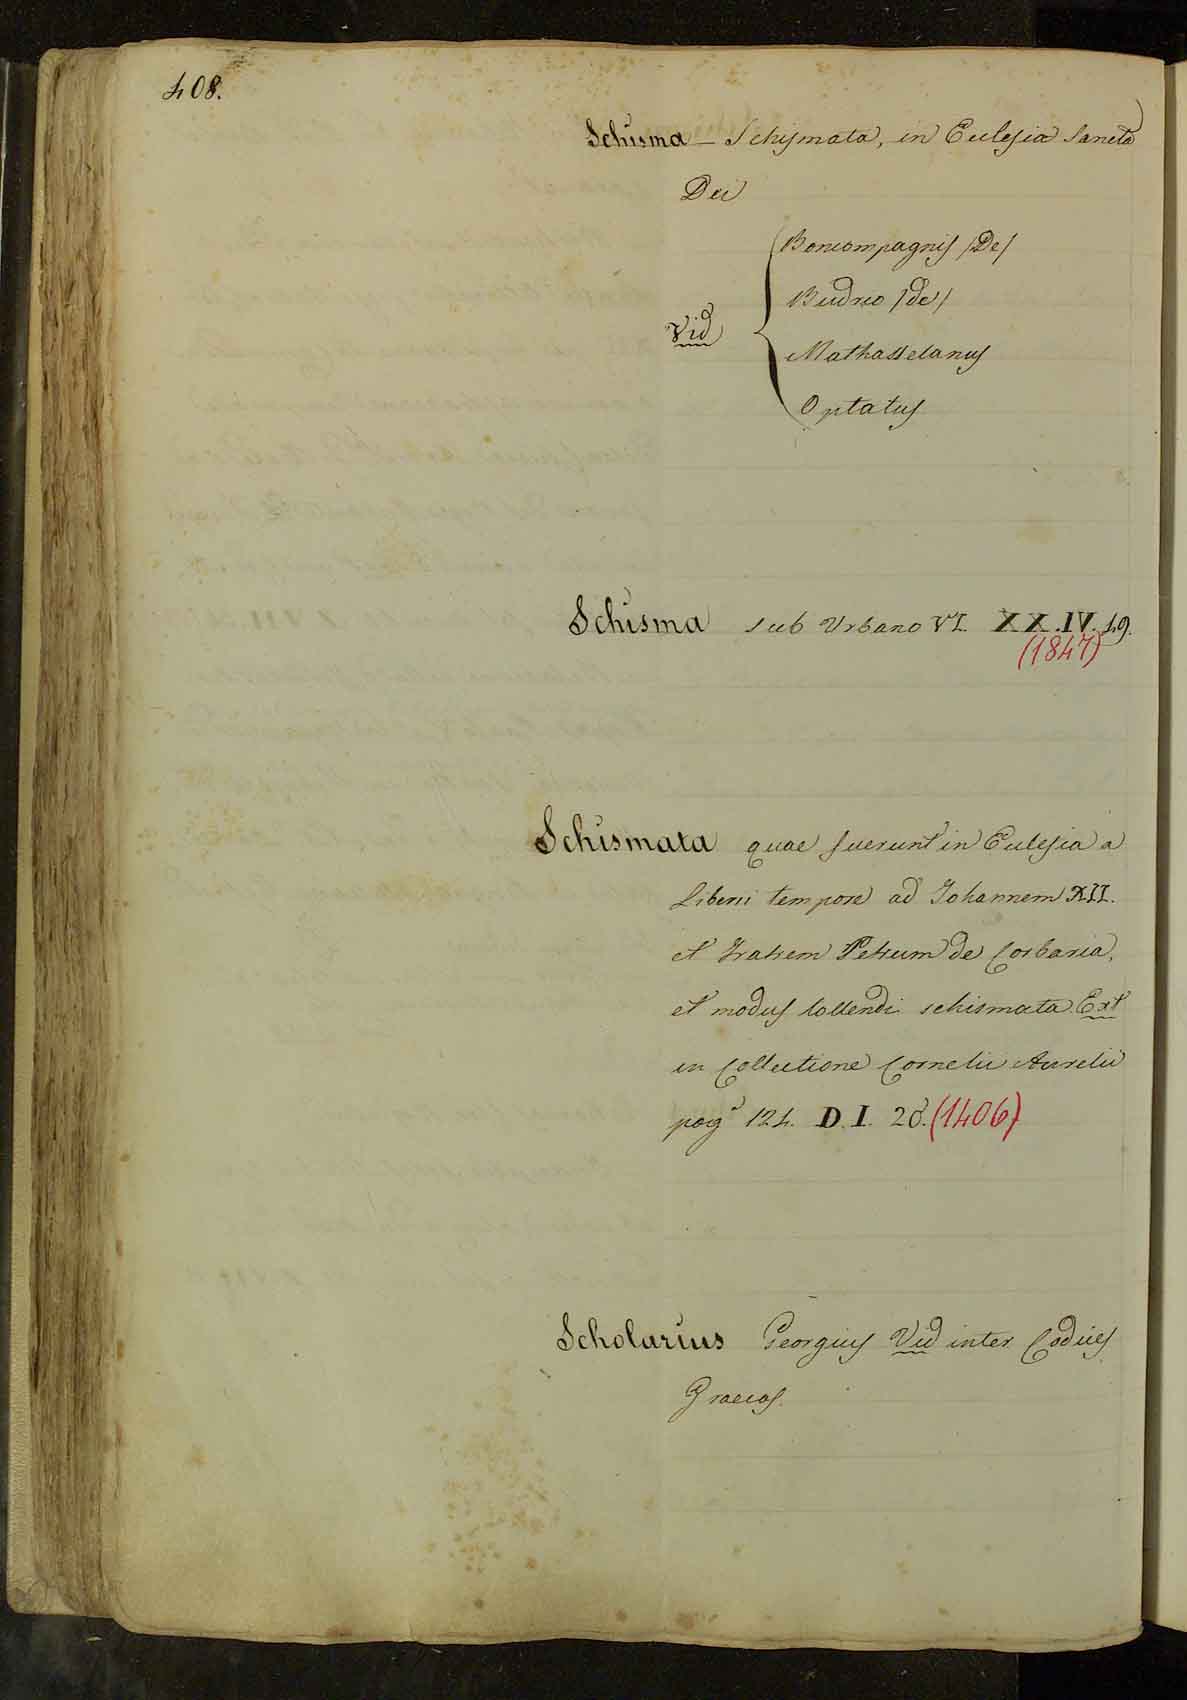 408.
Schisma – Schismata, in Eclesia Sancta
Dei
Vid
Boncompagnis (De)
Budrio (de)
Mathasselanus
Optatus
Schisma sub Urbano VI. XX.IV. 49.
(1847)
Schismata quae fuerunt in Eclesia a
Liberii tempore ad Johannem XII.
et Fratrem Petrum de Corbaria,
et modus tollendi schismata. Ext
in Collectione Cornelii Aurelii
pag.ª 124. D. I. 20. (1406)
Scholarius Georgius Vid inter Codices
Graecos.